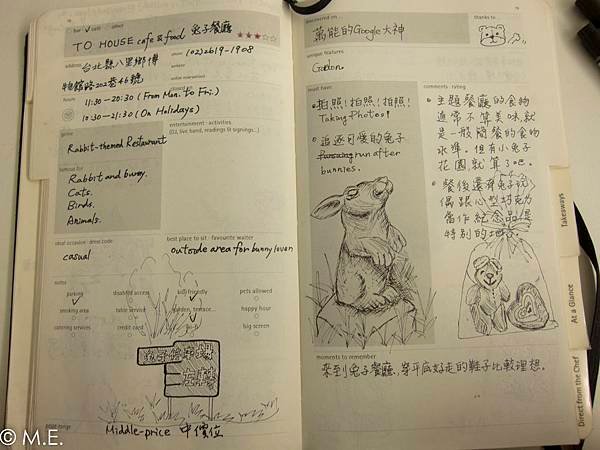 bar ✓ café other
TO HOUSE cafe & food 兔子餐廳
★★★☆☆
address 台北縣八里鄉博
物館路202巷46號
phone (02)2619-1908
website
hours
11:30-20:30 (From Mon. to Fri.)
10:30-21:30 (On Holidays)
genre
Rabbit-themed Restaurant
entertainment · activities
(DJ, live band, readings & signings...)
famous for
Rabbit and buney.
Cats.
Birds.
Animals.
ideal occasion · dress code
casual
best place to sit · favourite waiter
outside area for bunny lover
notes
parking
disabled access
kids friendly
pets allowed
smoking area
table service
garden, terrace...
happy hour
catering services
credit card
big screen
左轉
price range
Middle-price 中價位
discovered on...
萬能的Google大神
thanks to...
unique features
Garden.
must have
•拍照!拍照!拍照!
Taking Photos!
•追逐可愛的兔子
run after
bunnies.
comments · rating
•主題餐廳的食物
通常不算美味,就
是一般簡餐的食物
水準。但有小兔子
花園就算了吧。
•餐後還有兔子玩
偶跟心型巧克力
當作紀念品是
特別的地方。
moments to remember
來到兔子餐廳,穿平底好走的鞋子比較理想。
Takeaways
At a Glance
Direct from the Chef
© M.E.